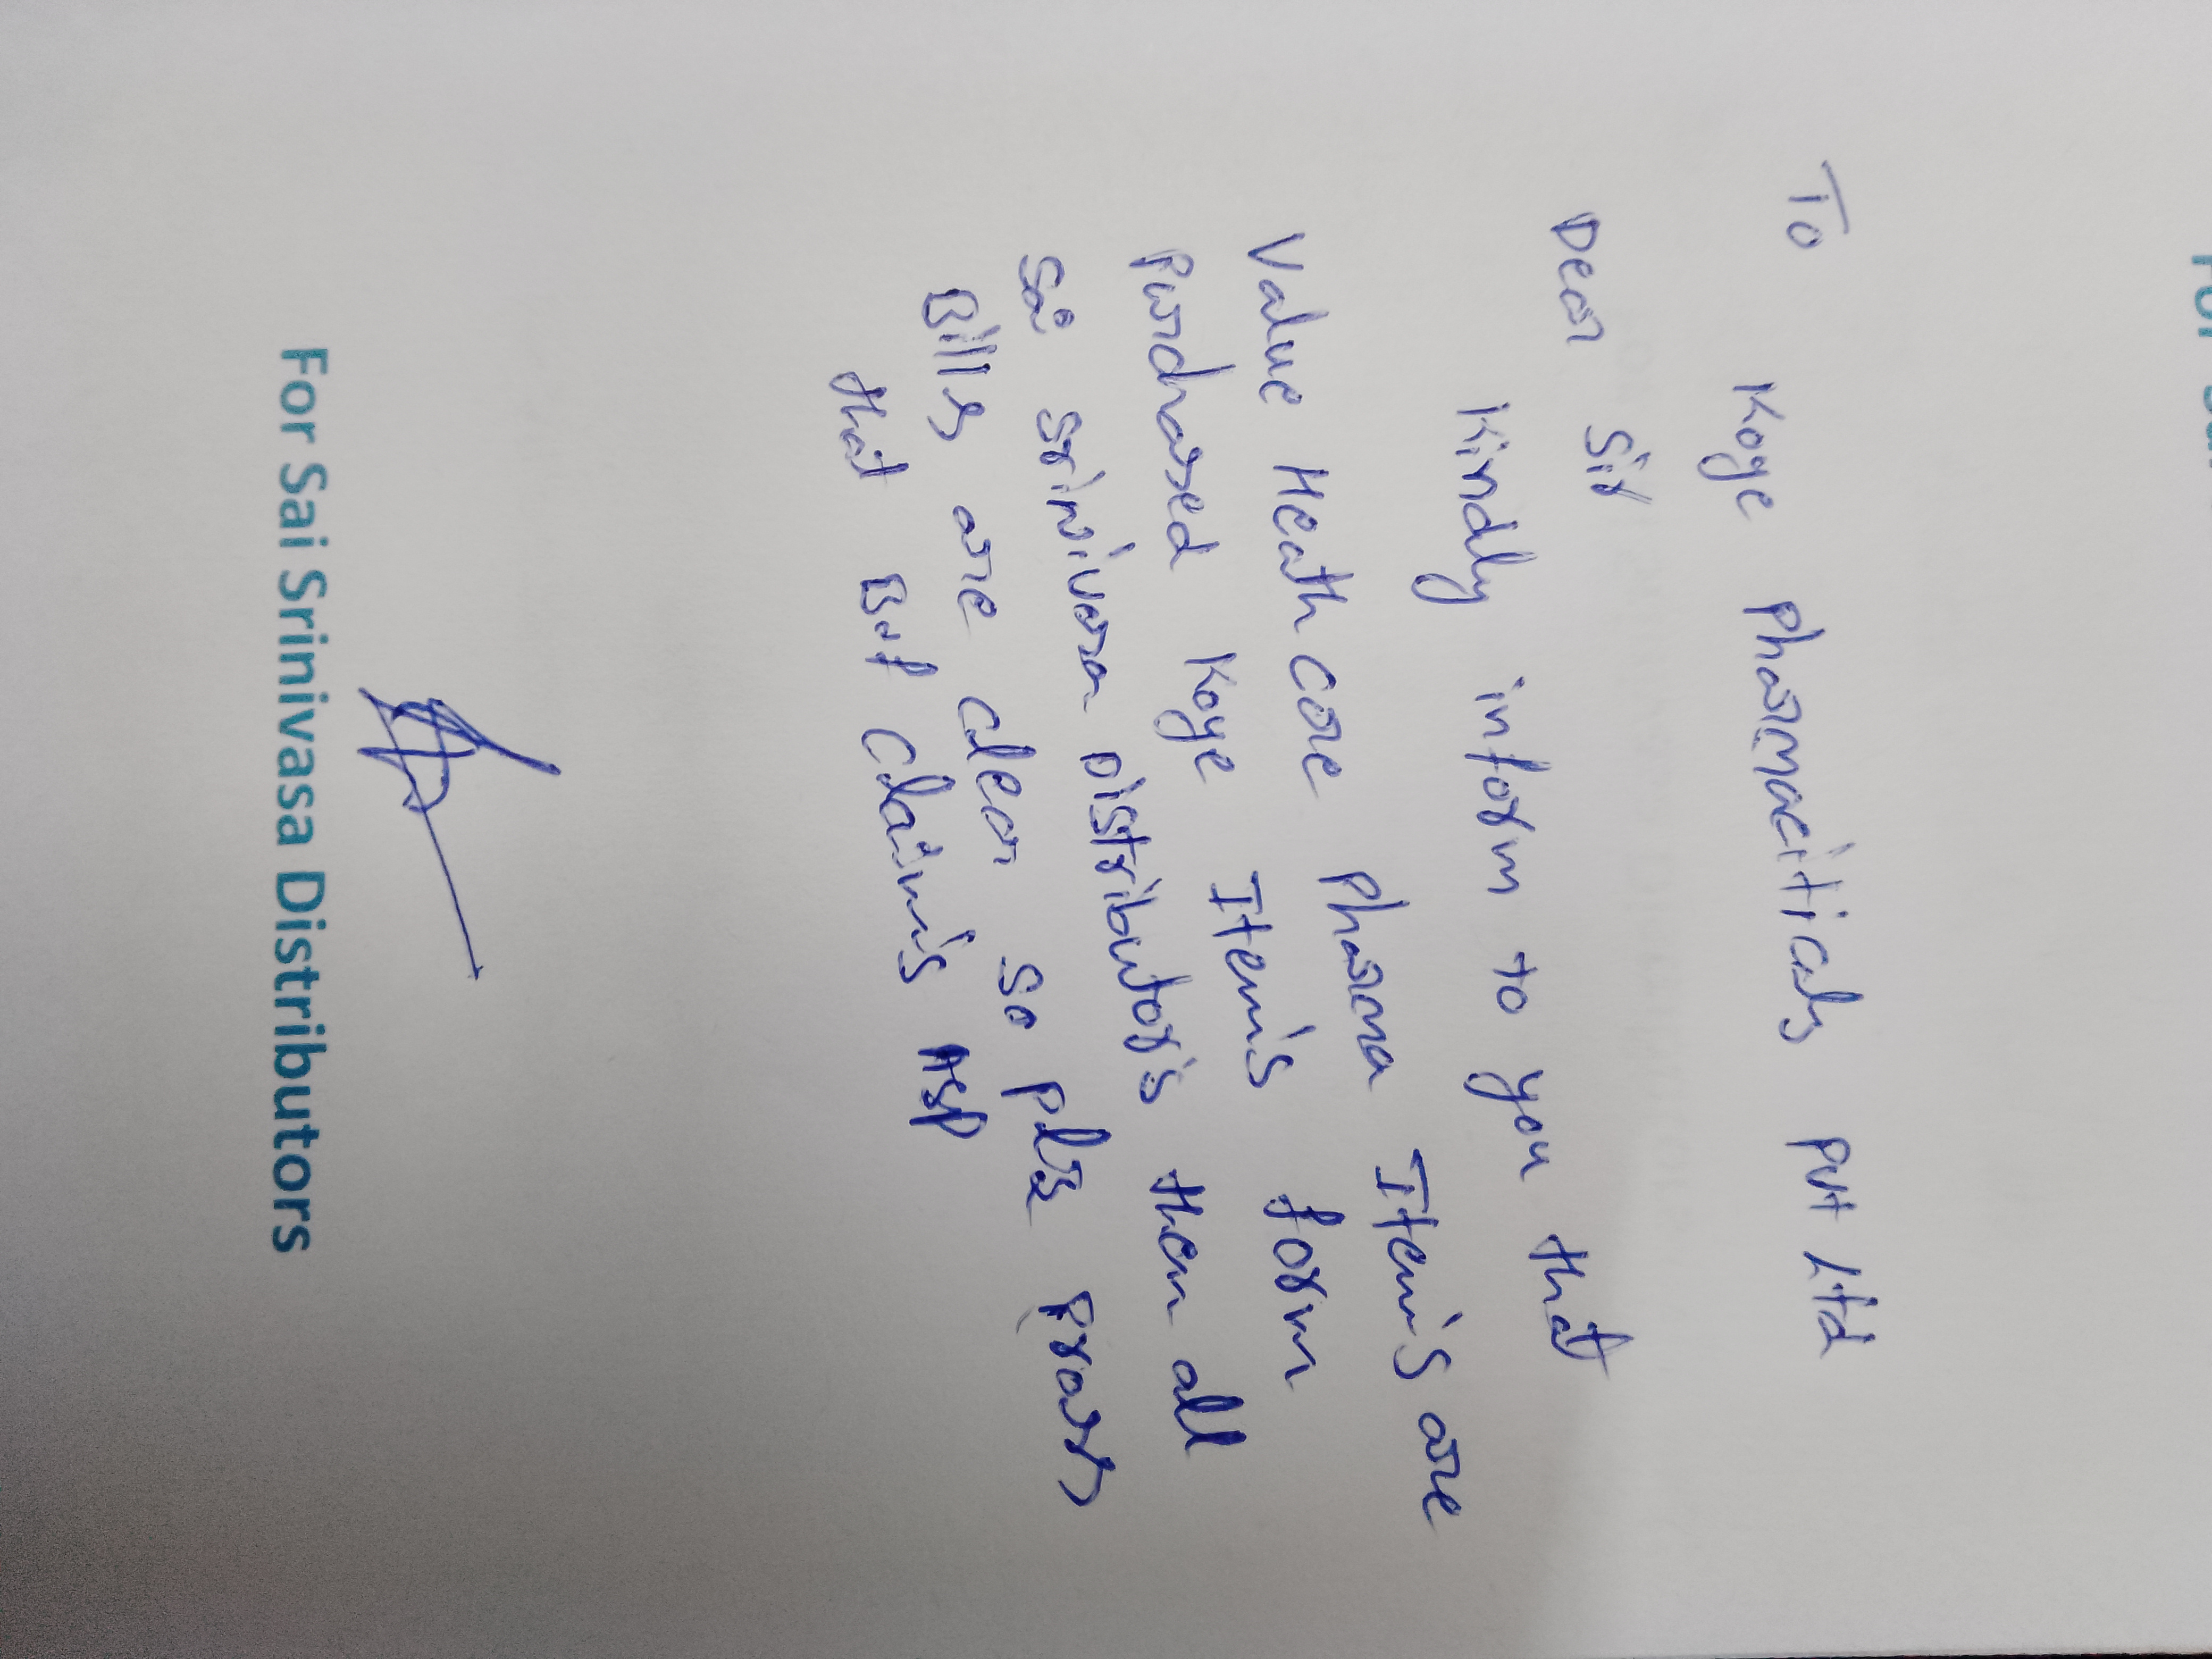 To
Koye Pharmaciticals Pvt Ltd
Dear Sir
Kindly inform to you that
Value Heath Care Pharma Item's are
Purchased Koye Item's form
Sai Srinivasa Distributor's them all
Bills are clear so pls
that But Claim's ASP
For Sai Srinivasa Distributors